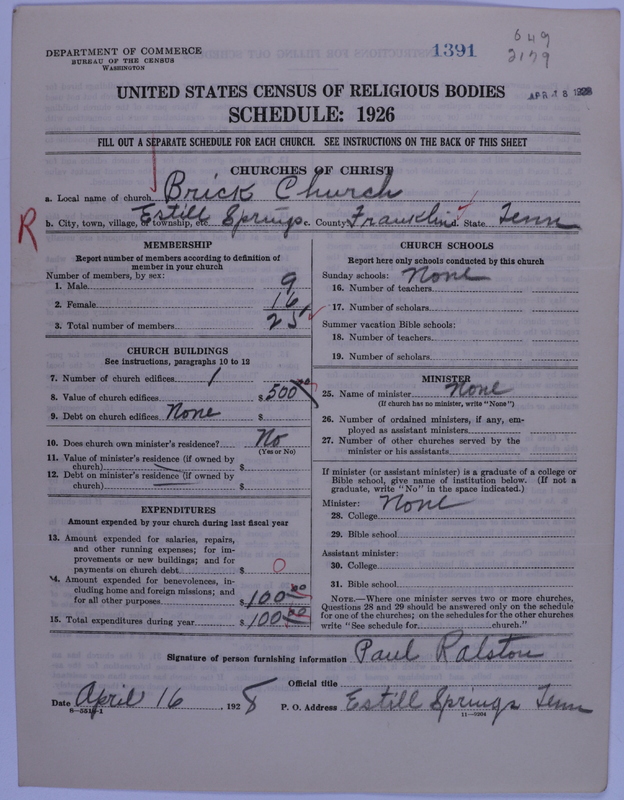 DEPARTMENT OF COMMERCE
BUREAU OF THE CENSUS
WASHINGTON
1391
649
2179
APR 18 1928
UNITED STATES CENSUS OF RELIGIOUS BODIES
SCHEDULE: 1926
FILL OUT A SEPARATE SCHEDULE FOR EACH CHURCH. SEE INSTRUCTIONS ON THE BACK OF THIS SHEET
CHURCHES OF CHRIST
a. Local name of church Brick Church
R
b. City, town, village, or township, etc. Estill Springs c. County Franklin d. State. Tenn
MEMBERSHIP
Report number of members according to definition of
member in your church
Number of members, by sex:
1. Male 9
2. Female 16
3. Total number of members 25
CHURCH BUILDINGS
See instructions, paragraphs 10 to 12
7. Number of church edifices 1
8. Value of church edifices $500
9. Debt on church edifices None $
10. Does church own minister's residence? No
(Yes or No)
11. Value of minister's residence (if owned by
church) $
12. Debt on minister's residence (if owned by
church) $
EXPENDITURES
Amount expended by your church during last fiscal year
13. Amount expended for salaries, repairs,
and other running expenses; for im-
provements or new buildings; and for
payments on church debt $ 0
14. Amount expended for benevolences, in-
cluding home and foreign missions; and
for all other purposes $100 00
15. Total expenditures during year $100 00
CHURCH SCHOOLS
Report here only schools conducted by this church
Sunday schools: None
16. Number of teachers
17. Number of scholars
Summer vacation Bible schools:
18. Number of teachers
19. Number of scholars
MINISTER
25. Name of minister None
(If church has no minister, write "None")
26. Number of ordained ministers, if any, em-
ployed as assistant ministers
27. Number of other churches served by the
minister or his assistants
If minister (or assistant minister) is a graduate of a college or
Bible school, give name of institution below. (If not a
graduate, write "No" in the space indicated.)
Minister: None
28. College
29. Bible school
Assistant minister:
30. College
31. Bible school
NOTE.—Where one minister serves two or more churches,
Questions 28 and 29 should be answered only on the schedule
for one of the churches; on the schedules for the other churches
write "See schedule for church."
Signature of person furnishing information Paul Ralston
Official title
Date April 16, 1928 P. O. Address Estill Springs Tenn
8—5519-1
11—9204